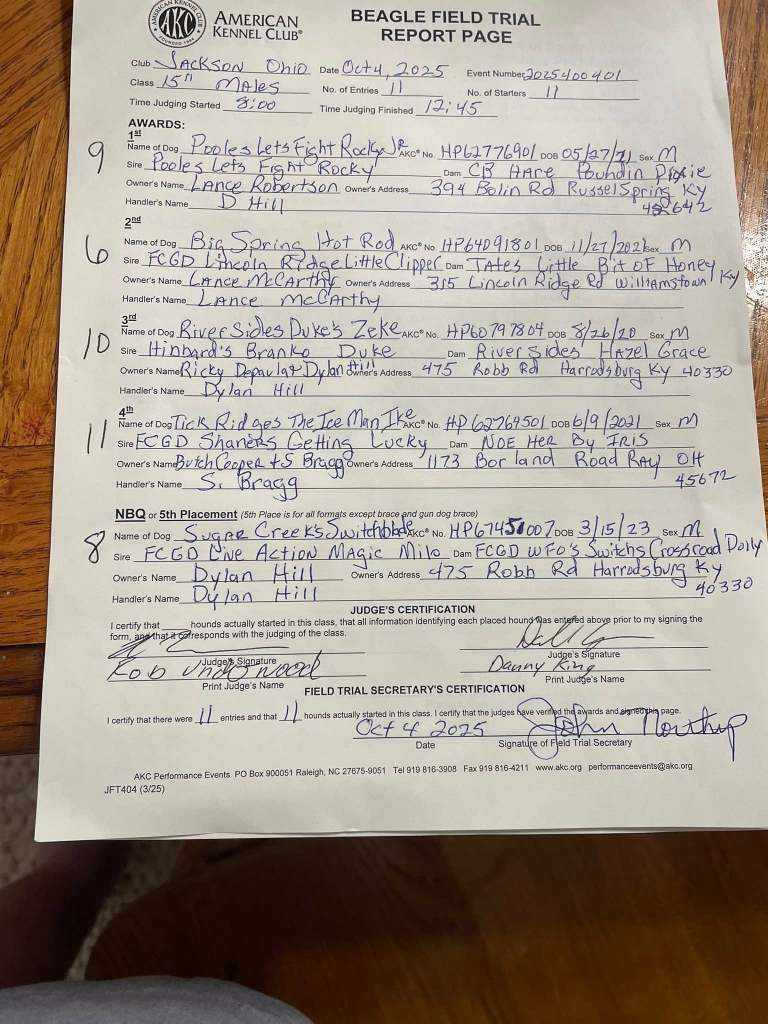 AMERICAN KENNEL CLUB FOUNDED 1884
AKC
AMERICAN
KENNEL CLUB®
BEAGLE FIELD TRIAL
REPORT PAGE
Club Jackson Ohio Date Oct 4, 2025 Event Number 2025400401
Class 15" Males No. of Entries 11 No. of Starters 11
Time Judging Started 8:00 Time Judging Finished 12:45
AWARDS:
1st
9 Name of Dog Pooles Lets Fight Rocky Jr AKC® No. HP62776901 DOB 05/27/21 Sex M
Sire Pooles Lets Fight Rocky Dam CB Hare Poundin Pixie
Owner's Name Lance Robertson Owner's Address 394 Bolin Rd Russel Spring Ky
42642
Handler's Name D Hill
2nd
6 Name of Dog Big Spring Hot Rod AKC® No. HP64091801 DOB 11/27/2021 Sex M
Sire FCGD Lincoln Ridge Little Clipper Dam Tates Little Bit of Honey
Owner's Name Lance McCarthy Owner's Address 315 Lincoln Ridge Rd Williamstown Ky
Handler's Name Lance McCarthy
3rd
10 Name of Dog River Sides Duke's Zeke AKC® No. HP60797804 DOB 8/26/20 Sex M
Sire Hinbard's Branko Duke Dam River sides Hazel Grace
Owner's Name Ricky Depaula & Dylan Hill Owner's Address 475 Robb Rd Harrodsburg Ky 40330
Handler's Name Dylan Hill
4th
11 Name of Dog Tick Ridges The Ice Man Ike AKC® No. HP62764501 DOB 6/9/2021 Sex M
Sire FCGD Shaners Getting Lucky Dam Noe Her By Iris
Owner's Name Butch Cooper & S Bragg Owner's Address 1173 Borland Road Ray OH
45672
Handler's Name S. Bragg
NBQ or 5th Placement (5th Place is for all formats except brace and gun dog brace)
8 Name of Dog Sugar Creek's Switchblade AKC® No. HP67451007 DOB 3/15/23 Sex M
Sire FCGD Live Action Magic Milo Dam FCGD WFO's Switchs Crossroad Dolly
Owner's Name Dylan Hill Owner's Address 475 Robb Rd Harrodsburg Ky
40330
Handler's Name Dylan Hill
JUDGE'S CERTIFICATION
I certify that ____ hounds actually started in this class, that all information identifying each placed hound was entered above prior to my signing the
form, and that it corresponds with the judging of the class.
Judge's Signature Judge's Signature
Rob Underwood Danny King
Print Judge's Name Print Judge's Name
FIELD TRIAL SECRETARY'S CERTIFICATION
I certify that there were 11 entries and that 11 hounds actually started in this class. I certify that the judges have verified the awards and signed this page.
Oct 4 2025 John Northup
Date Signature of Field Trial Secretary
AKC Performance Events PO Box 900051 Raleigh, NC 27675-9051 Tel 919 816-3908 Fax 919 816-4211 www.akc.org performanceevents@akc.org
JFT404 (3/25)